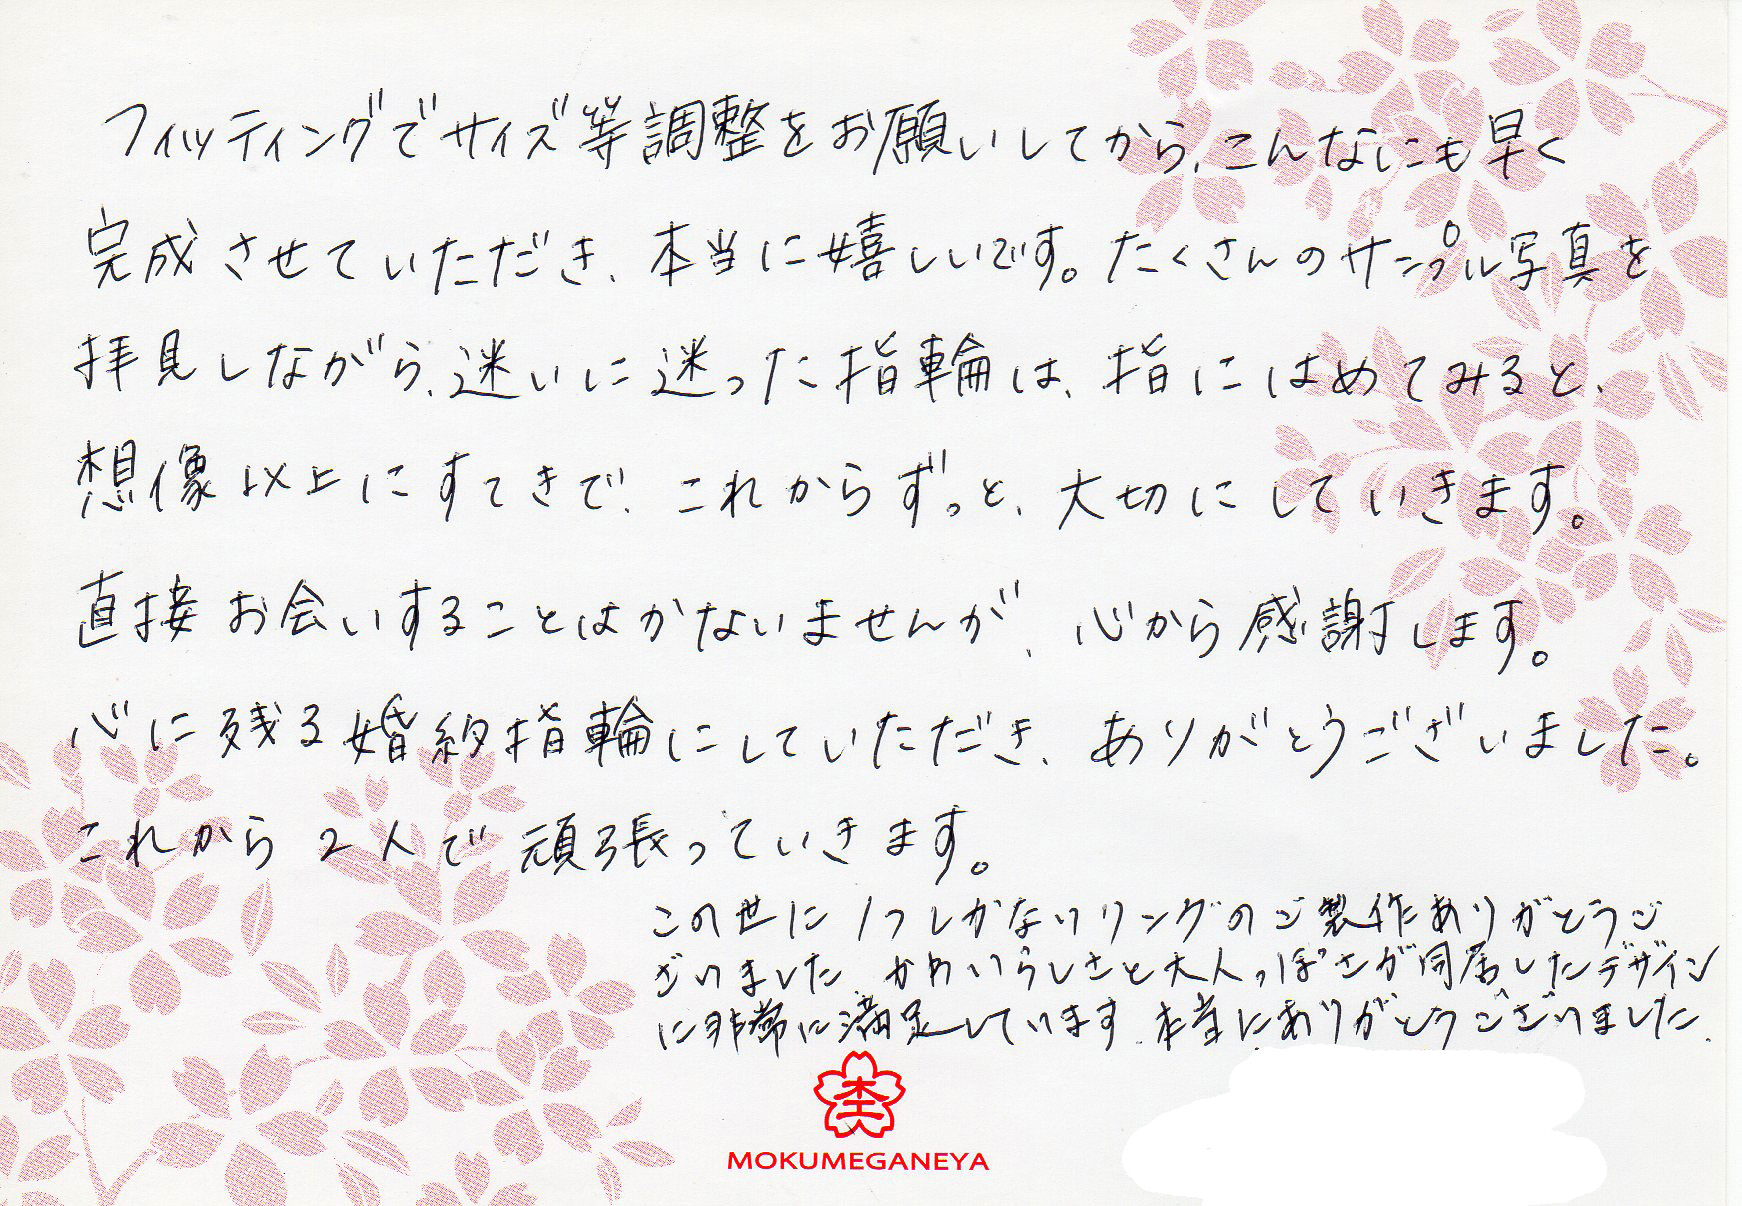 フィッティングでサイズ等調整をお願いしてから、こんなにも早く
完成させていただき、本当に嬉しいです。たくさんのサンプル写真を
拝見しながら、迷いに迷った指輪は、指にはめてみると、
想像以上にすてきで、これからずっと、大切にしていきます。
直接お会いすることはかないませんが、心から感謝します。
心に残る婚約指輪にしていただき、ありがとうございました。
これから2人で頑張っていきます。
この世に1つしかないリングのご製作ありがとうご
ざいました。かわいらしさと大人っぽさが同居したデザイン
に非常に満足しています。本当にありがとうございました。
杢
MOKUMEGANEYA